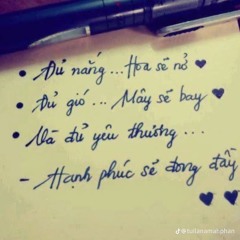 • Đủ nắng...Hoa sẽ nở ♥
• Đủ gió ... Mây sẽ bay ♥
• Và đủ yêu thương ...
- Hạnh phúc sẽ đong đầy
♥ ♥